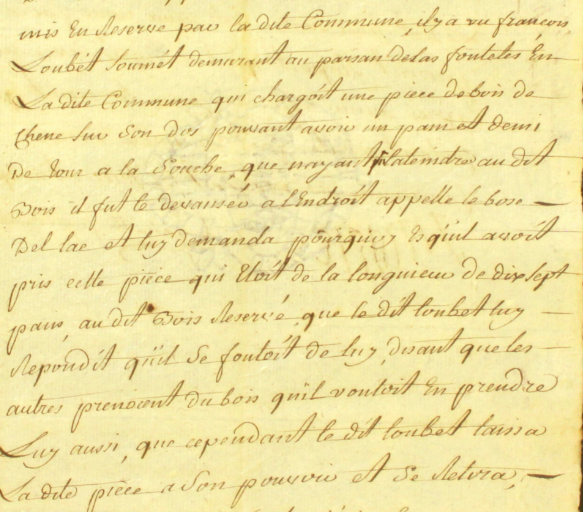 mis En Reserve par la dite Commune, il y a vu françois
Loubét Soumét demurant au parsan delas fontetes En
La dite Commune qui chargoit une piece de bois de
Chene sur Son dos pouvant avoir un pam et demi
De tour a la Souche, que nayant pu lateindre au dit
Bois il fut le devansér a l'Endroit appelle le bosc —
Del lac et luy demanda pourquoy Esquil avoit
pris cette piéce qui Etoit de la longuieur de dix sept
pams, au dit Bois Reservé, que le dit loubet luy —
Repondit quil Se foutoit de luy, disant que les —
autres prenoient du bois quil vouloit En prendre
Luy aussi, que cependant le dit loubet laissa
La dite piéce a Son pouvoir et Se Retira, —